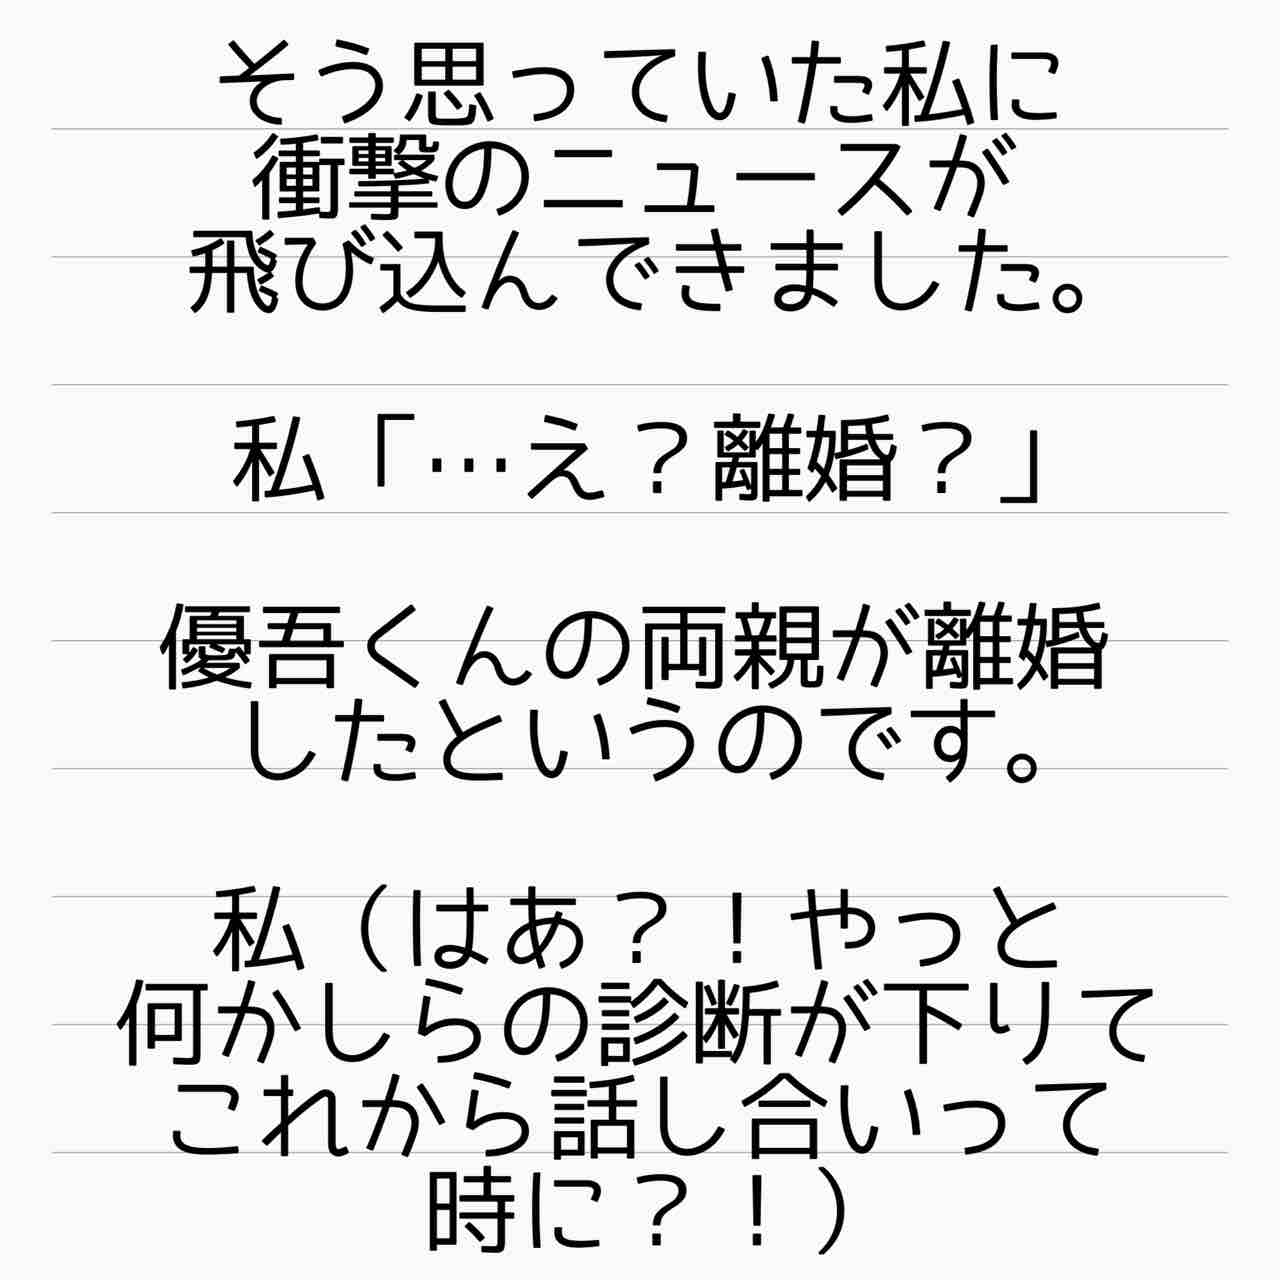 そう思っていた私に
衝撃のニュースが
飛び込んできました。
私「…え？離婚？」
優吾くんの両親が離婚
したというのです。
私（はあ？！やっと
何かしらの診断が下りて
これから話し合いって
時に？！）